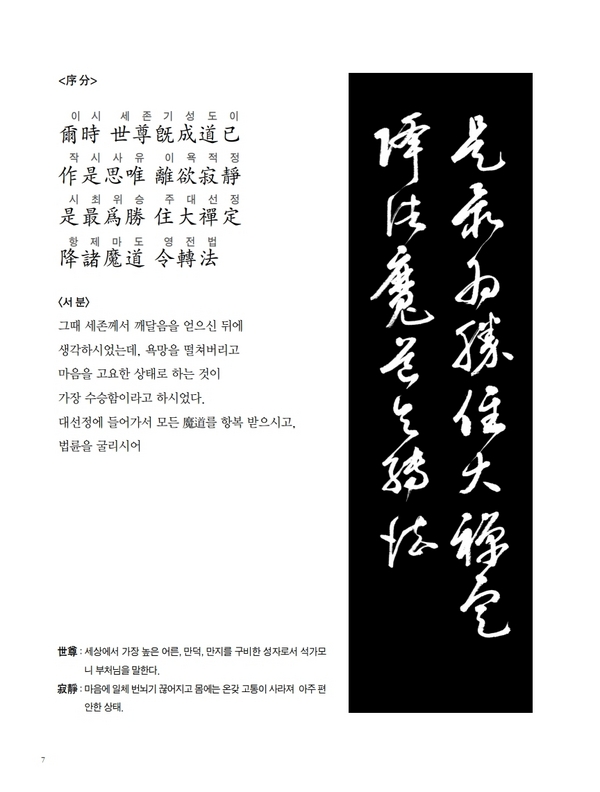 <序 分>
이 시 세 존 기 성 도 이
爾時 世尊旣成道已
작 시 사 유 이 욕 적 정
作是思唯 離欲寂靜
시 최 위 승 주 대 선 정
是最爲勝 住大禪定
항 제 마 도 영 전 법
降諸魔道 令轉法
<서 분>
그때 세존께서 깨달음을 얻으신 뒤에
생각하시었는데, 욕망을 떨쳐버리고
마음을 고요한 상태로 하는 것이
가장 수승함이라고 하시었다.
대선정에 들어가서 모든 魔道를 항복 받으시고,
법륜을 굴리시어
世尊 : 세상에서 가장 높은 어른, 만덕, 만지를 구비한 성자로서 석가모
니 부처님을 말한다.
寂靜 : 마음에 일체 번뇌가 끊어지고 몸에는 온갖 고통이 사라져 아주 편
안한 상태.
是最為勝住大禪定
降諸魔道令轉法
7